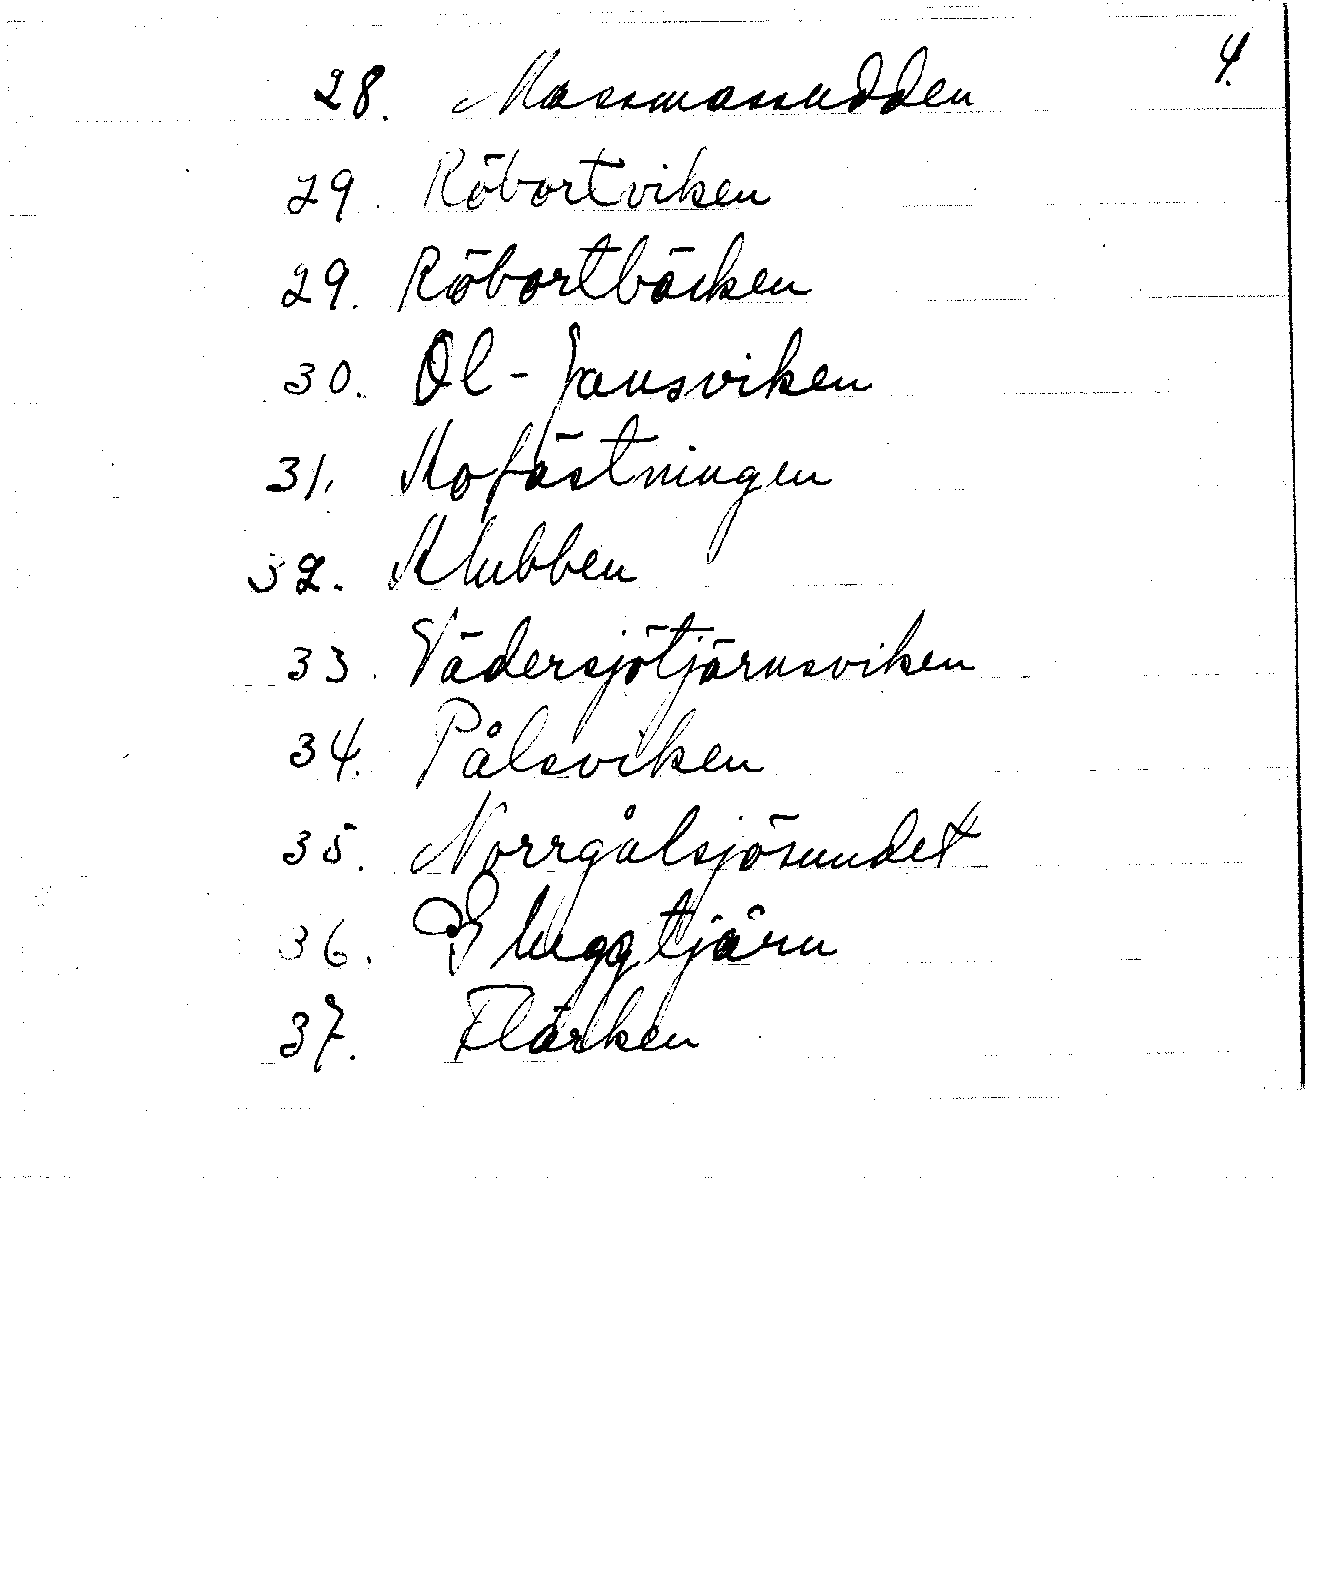 4.
28. Massmassudden
29. Röbortviken
29. Röbortbäcken
30. Ol-Jansviken
31. Kofästningen
32. Klubben
33. Vädersjötjärnsviken
34. Pålsviken
35. Norrgålsjösundet
36. Skuggtjärn
37. Flärken